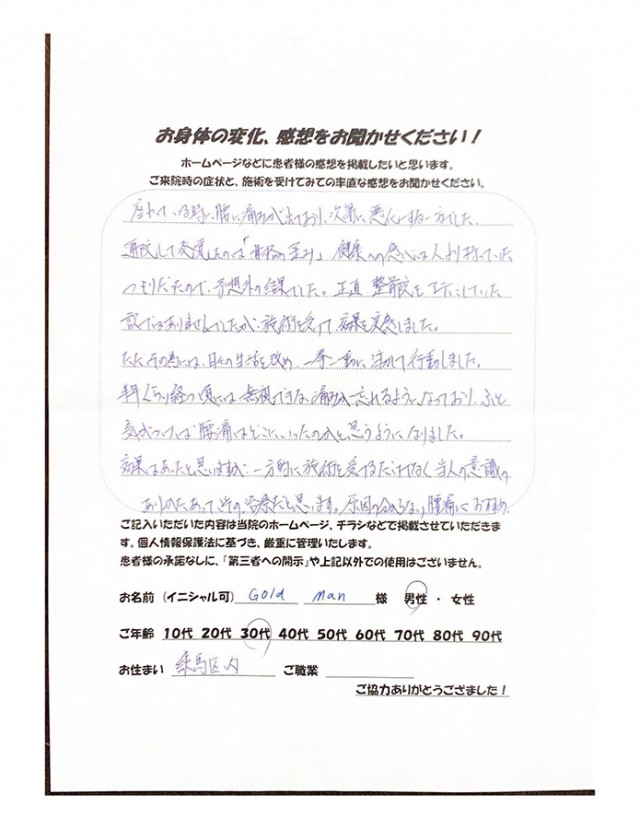 お身体の変化、感想をお聞かせください！
ホームページなどに患者様の感想を掲載したいと思います。
ご来院時の症状と、施術を受けてみての率直な感想をお聞かせください。
座わている時に腰に痛みが出ており、次第に悪化する一方でした。
通院して発覚したのは「骨格の歪み」健康への感心は人より持っていた
つもりだったので、予想外の結果でした。正直 整骨院を
訳ではありませんでしたが、施術を受けて、効果を実感しました。
ただその為には、日々の生活を改め、一挙一動に注力して行動しました。
半年くらい経つ頃には無視できない痛みが忘れるようになっており、ふと
気がつけば 腰痛はどこにいったのかと思うようになりました。
効果はあったと思いますが、一方的に施術を受けるだけでなく当人の意識の
の治療だと思います。原因の分からない腰痛におすすめ
ご記入いただいた内容は当院のホームページ、チラシなどで掲載させていただきま
す。個人情報保護法に基づき、厳重に管理いたします。
患者様の承諾なしに、「第三者への開示」や上記以外での使用はございません。
お名前（イニシャル可） Gold Man 様 男性 ・ 女性
ご年齢 10代 20代 30代 40代 50代 60代 70代 80代 90代
お住まい 練馬区内 ご職業
ご協力ありがとうございました！